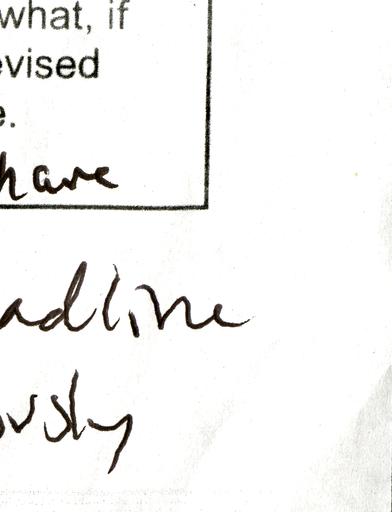 what, if
evised
e.
have
adline
ously